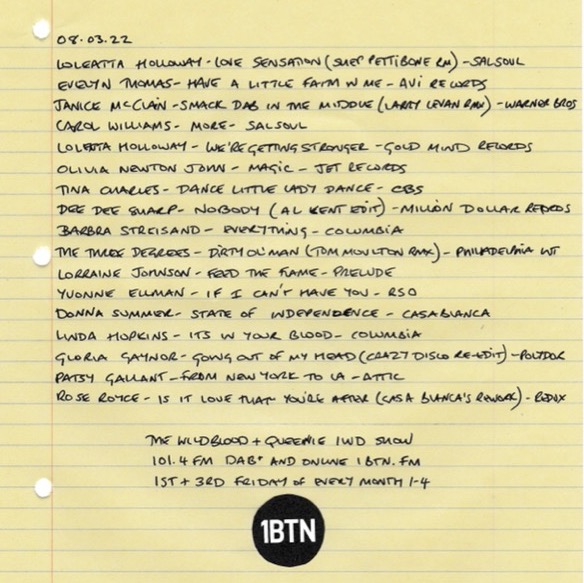 08.03.22
LOLEATTA HOLLOWAY - LOVE SENSATION (SHEP PETTIBONE RM) - SALSOUL
EVELYN THOMAS - HAVE A LITTLE FAITH IN ME - AVI RECORDS
JANICE McCLAIN - SMACK DAB IN THE MIDDLE (LARRY LEVAN RMX) - WARNER BROS
CAROL WILLIAMS - MORE - SALSOUL
LOLEATTA HOLLOWAY - WE'RE GETTING STRONGER - GOLD MIND RECORDS
OLIVIA NEWTON JOHN - MAGIC - JET RECORDS
TINA CHARLES - DANCE LITTLE LADY DANCE - CBS
DEE DEE SHARP - NOBODY (AL KENT EDIT) - MILLION DOLLAR RECORDS
BARBRA STREISAND - EVERYTHING - COLUMBIA
THE THREE DEGREES - DIRTY OL' MAN (TOM MOULTON RMX) - PHILADELPHIA INT
LORRAINE JOHNSON - FEED THE FLAME - PRELUDE
YVONNE ELLMAN - IF I CAN'T HAVE YOU - RSO
DONNA SUMMER - STATE OF INDEPENDENCE - CASABLANCA
LINDA HOPKINS - ITS IN YOUR BLOOD - COLUMBIA
GLORIA GAYNOR - GOING OUT OF MY HEAD (CRAZY DISCO RE-EDIT) - POLYDOR
PATSY GALLANT - FROM NEW YORK TO LA - ATTIC
ROSE ROYCE - IS IT LOVE THAT YOU'RE AFTER (CASA BLANCA'S REWORK) - REDUX
THE WILDBLOOD + QUEENIE IWD SHOW
101.4 FM DAB+ AND ONLINE 1BTN.FM
1ST + 3RD FRIDAY OF EVERY MONTH 1-4
1BTN